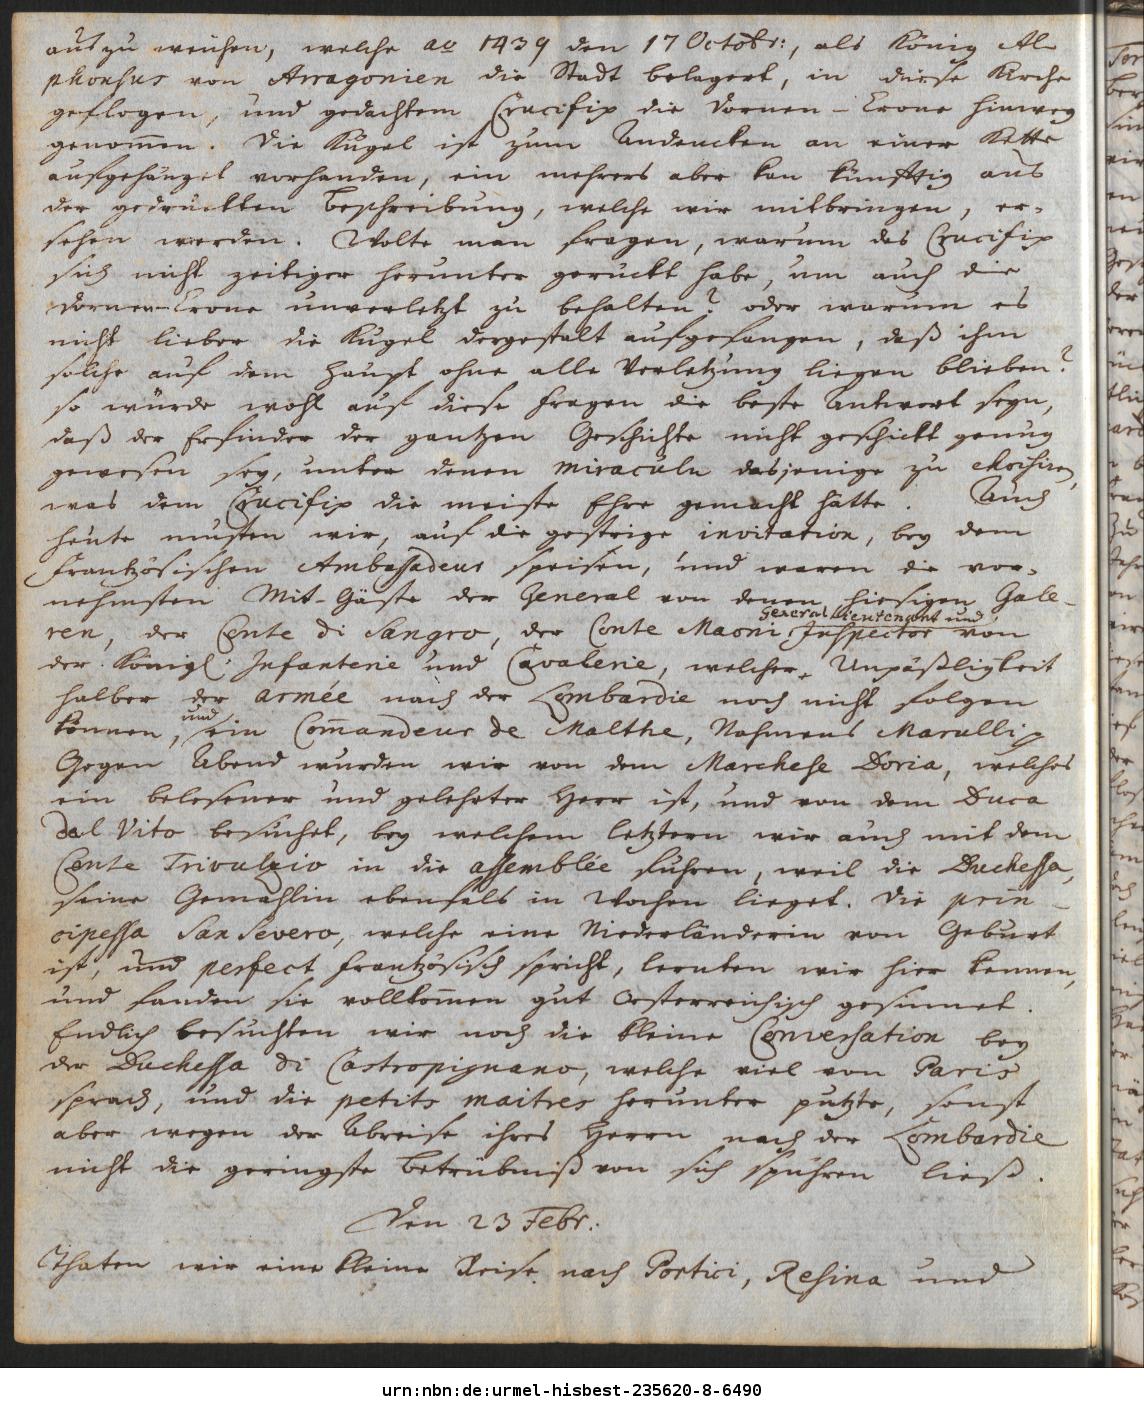 auszuweichen, welche ao 1439 den 17 Octobr:, als König Al-
phonsus von Arragonien die Stadt belagert, in diese Kirche
geflogen, und gedachtem Crucifix die Dornen-Crone hinweg
genom̄en. Die Kugel ist zum Andencken an einer Kette
aufgehänget vorhanden, ein mehrers aber kan künfftig aus
der gedruckten Beschreibung, welche wir mitbringen, er-
sehen werden. Wolte man fragen, warum das Crucifix
sich nicht zeitiger herunter geruckt habe, um auch die
Dornen-Crone unverletzt zu behalten? oder warum es
nicht lieber die Kugel dergestalt aufgefangen, daß ihm
solche auf dem Haupt ohne alle Verletzung liegen blieben?
so würde wohl auf diese Fragen die beste Antwort seyn,
daß der Erfinder der gantzen Geschichte nicht geschickt genug
gewesen sey, unter denen miraculn dasjenige zu choisiren,
was dem Crucifix die meiste Ehre gemacht hätte. Auch
heute musten wir, auf die gestrige invitation, bey dem
Frantzösischen Ambassadeur speisen, und waren die vor-
nehmsten Mit-Gäste der General von denen hiesigen Gale-
ren, der Conte di Sangro, der Conte Maoni, General Lieutenant und Inspector von
der Königl: Infanterie und Cavalerie, welcher, Unpäßligkeit
halber der armée nach der Lombardie noch nicht folgen
können, und ein Com̄andeur de Malthe, Nahmens Marulli.
Gegen Abend wurden wir von dem Marchese Doria, welches
ein belesener und gelehrter Herr ist, und von dem Duca
del Vito besuchet, bey welchem letztern wir auch mit dem
Conte Trivulzio in die assemblée fuhren, weil die Duchessa,
seine Gemahlin ebenfals in Wochen lieget. Die prin-
cipessa San Severo, welche eine Niederländerin von Geburt
ist, und perfect frantzösisch spricht, lernten wir hier kennen,
und fanden sie vollkom̄en gut Oesterreichisch gesinnet.
Endlich besuchten wir noch die kleine Conversation bey
der Duchessa di Castropignano, welche viel von Paris
sprach, und die petits maitres herunter putzte, sonst
aber wegen der Abreise ihres Herrn nach der Lombardie
nicht die geringste Betrübniß von sich spühren ließ.
Den 23 Febr:
Thaten wir eine kleine Reise nach Portici, Resina und
urn:nbn:de:urmel-hisbest-235620-8-6490